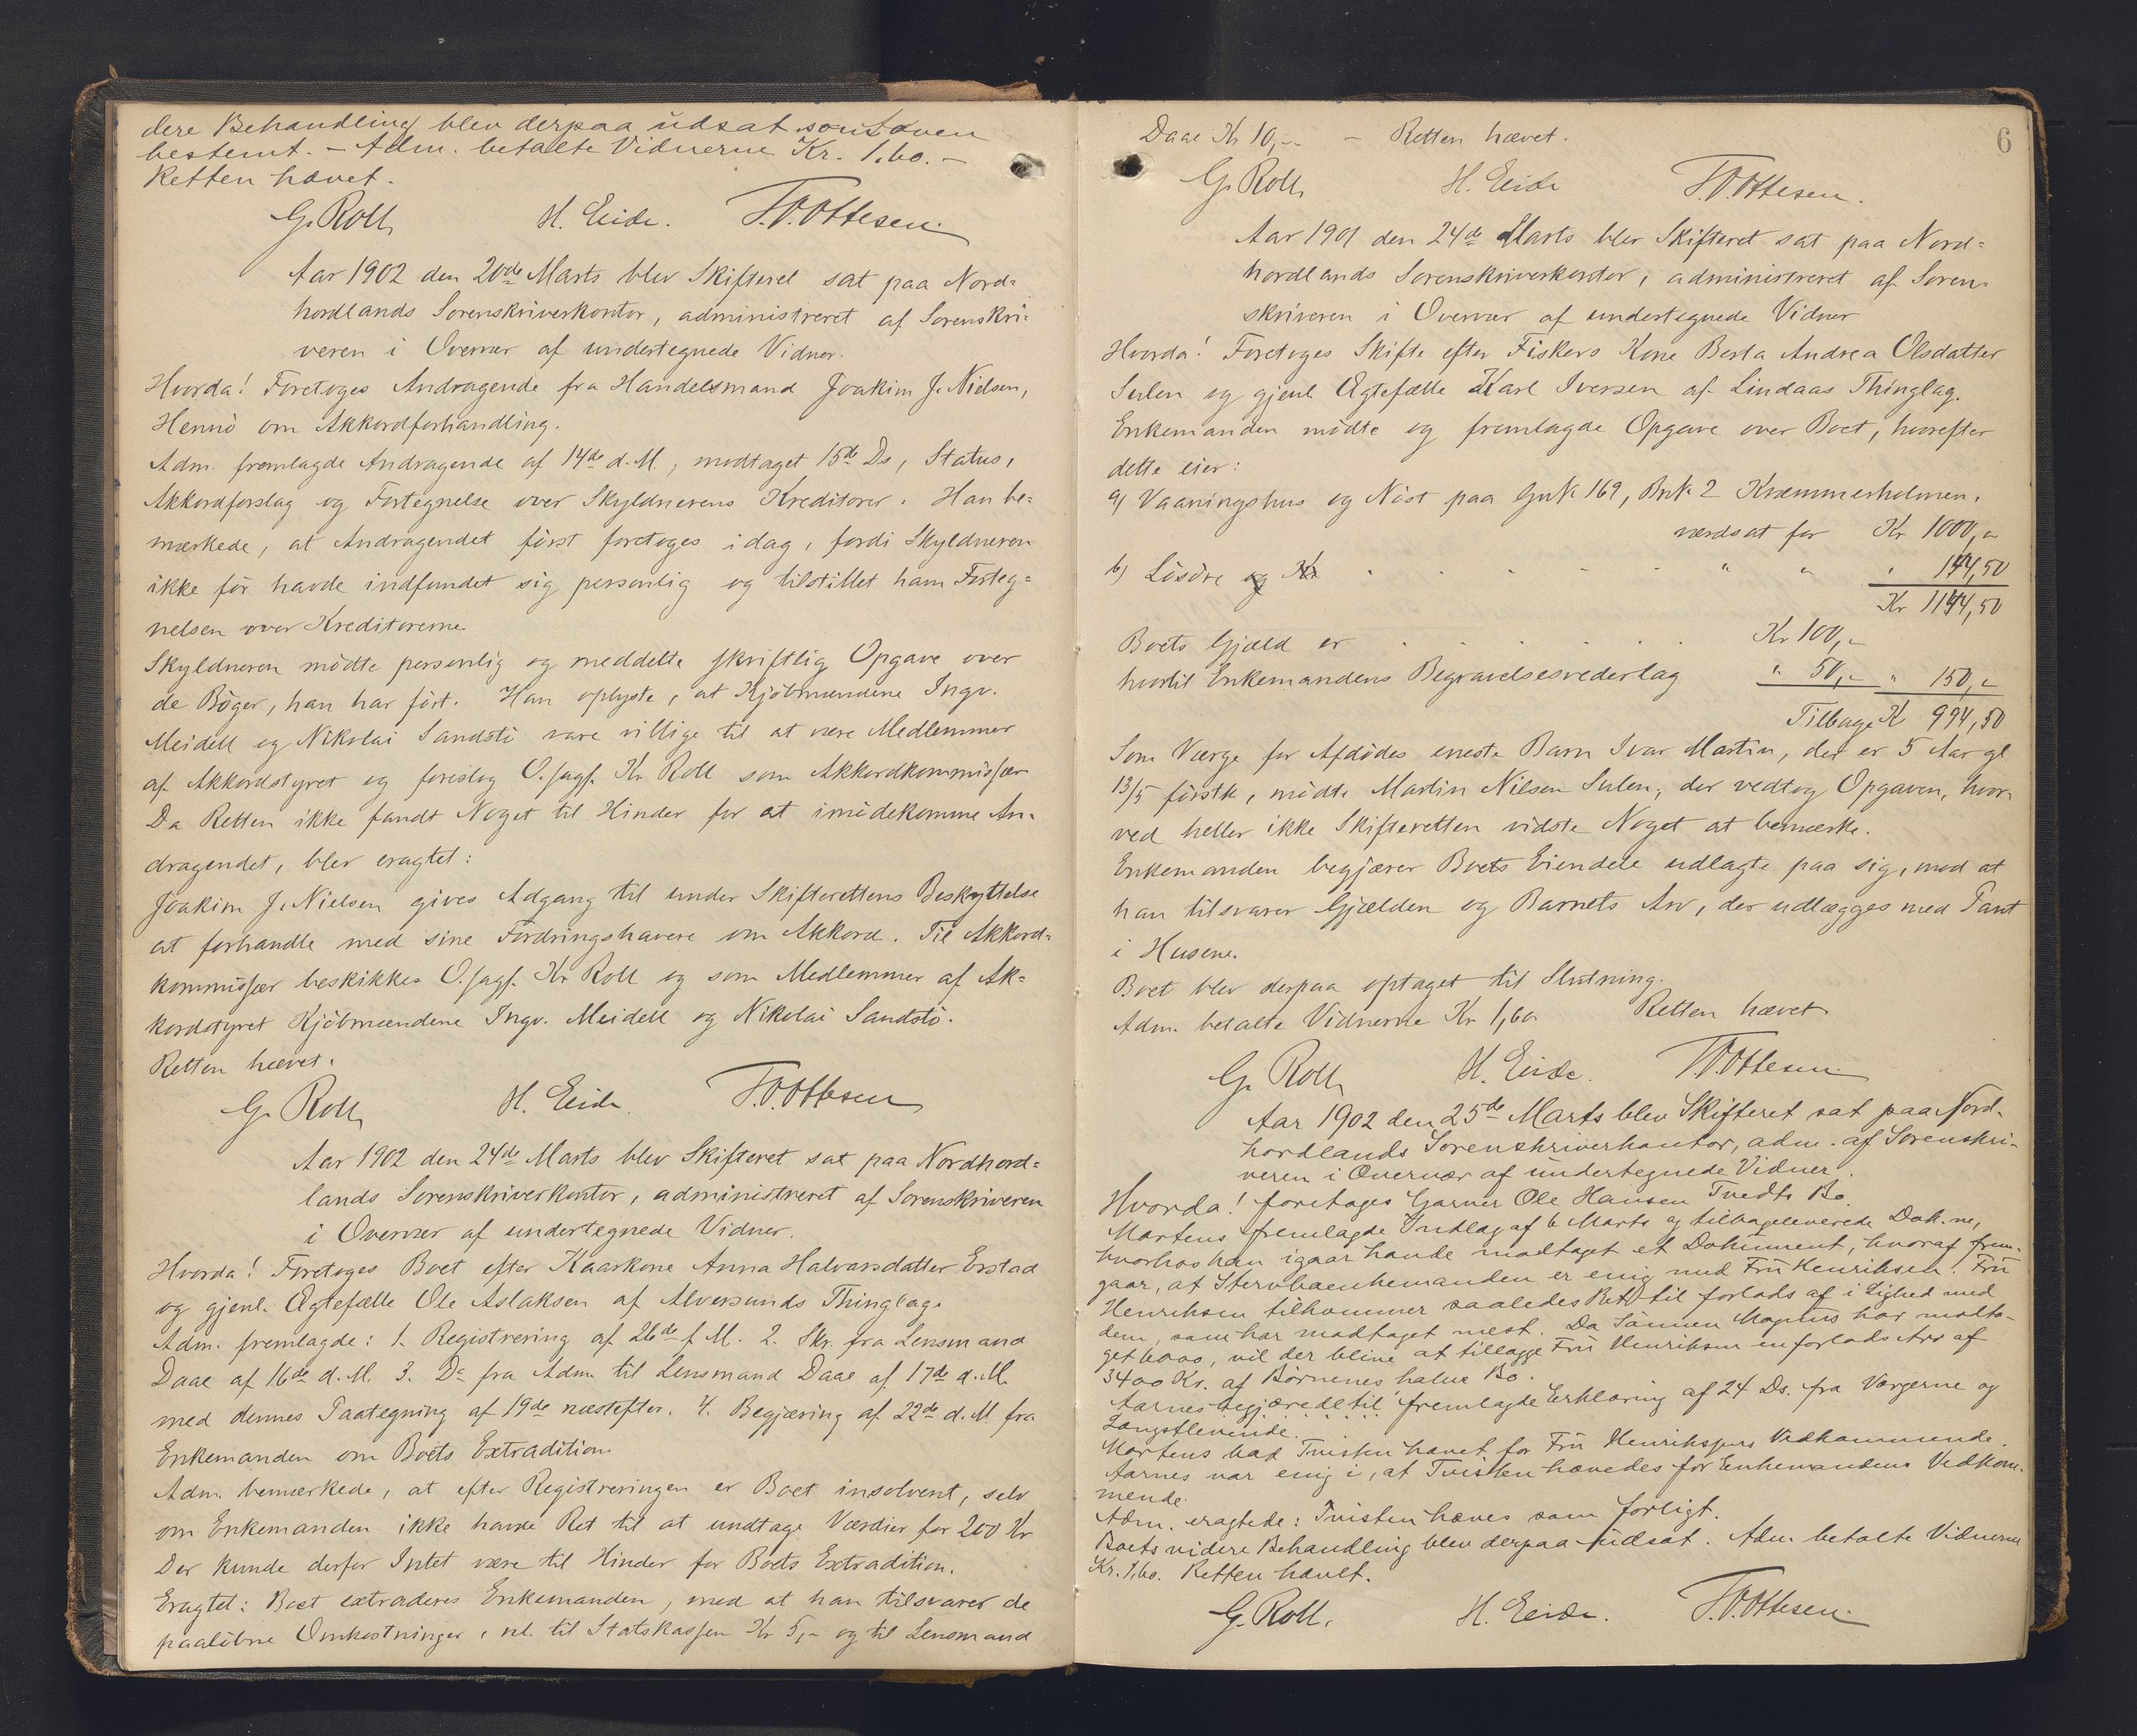 dere Behandling blev derpaa udsat som oven
bestemt. – Adm. betalte Vidnerne Kr. 1.60. –
Retten hævet.
G. Roll H. Eide. T.O. Ottesen.
Aar 1902 den 20de Marts blev Skifteret sat paa Nord=
hordlands Sorenskriverkontor, administreret af Sorenskri=
veren i Overvær af undertegnede Vidner.
Hvorda! Foretoges Andragende fra Handelsmand Joakim J. Nielsen,
Hennø om Akkordforhandling.
Adm. fremlagde Andragende af 14de d. M., modtaget 15de Ds, Status,
Akkordforslag og Fortegnelse over Skyldnerens Kreditorer. Han be=
mærkede, at Andragendet først foretoges idag, fordi Skyldneren
ikke før havde indfundet sig personlig og tilstillet ham Forteg=
nelsen over Kreditorerne
Skyldneren mødte personlig og meddelte skriftlig Opgave over
de Bøger, han har ført. Han oplyste, at Kjøbmændene Ingv.
Meidell og Nikolai Sandstø vare villige til at være Medlemmer
af Akkordstyret og foreslog O.sagf. Kr. Roll som Akkordkommissær
Da Retten ikke fandt Noget til Hinder for at imødekomme An=
dragendet, blev eragtet:
Joakim J. Nielsen gives Adgang til under Skifterettens Beskyttelse
at forhandle med sine Fordringshavere om Akkord. Til Akkord=
kommissær beskikkes O.sagf. Kr Roll og som Medlemmer af Ak=
kordstyret Kjøbmændene Ingv. Meidell og Nikolai Sandstø.
Retten hævet.
G. Roll H. Eide. T.O. Ottesen
Aar 1902 den 24de Marts blev Skifteret sat paa Nordhord=
lands Sorenskriverkontor, administreret af Sorenskriveren
i Overvær af undertegnede Vidner.
Hvorda! Foretoges Boet efter Kaarkone Anna Halvarsdatter Erstad
og gjenl. Ægtefælle Ole Aslaksen af Alversunds Thinglag.
Adm. fremlagde: 1. Registrering af 26de f. M. 2. Skr. fra Lensmand
Daae af 16de d. M. 3. Do fra Adm. til Lensmand Daae af 17de d. M.
med dennes Paategning af 19de næstefter. 4. Begjæring af 22de d. M. fra
Enkemanden om Boets Extradition.
Adm. bemærkede, at efter Registreringen er Boet insolvent, selv
om Enkemanden ikke havde Ret til at undtage Værdier for 200 Kr
Der kunde derfor Intet være til Hinder for Boets Extradition.
Eragtet: Boet extraderes Enkemanden, mod at han tilsvarer de
paaløbne Omkostninger, nl. til Statskassen Kr 5,- og til Lensmand
6
Daae Kr 10,-. – Retten hævet.
G. Roll H. Eide T.O. Ottesen.
Aar 1901 den 24de Marts blev Skifteret sat paa Nord=
hordlands Sorenskriverkontor, administreret af Soren=
skriveren i Overvær af undertegnede Vidner
Hvorda! Foretoges Skifte efter Fiskers Kone Berta Andrea Olsdatter
Sulen og gjenl. Ægtefælle Karl Iversen af Lindaas Thinglag.
Enkemanden mødte og fremlagde Opgave over Boet, hvorefter
dette eier:
a) Vaaningshus og Nøst paa GnN 169, BnN. 2 Kræmmerholmen,
værdsat for Kr 1000,-
b) Løsøre og Kr . . . . . " " " 144,50
Kr 1144,50
Boets Gjæld er . . . . . Kr 100,-
hvortil Enkemandens Begravelsesvederlag " 50,- " 150,-
Tilbage K 994,50
Som Værge for Afdødes eneste Barn Ivar Martin, der er 5 Aar gl
13/5 førstk, mødte Martin Nilsen Sulen, der vedtog Opgaven, hvor=
ved heller ikke Skifteretten vidste Noget at bemærke.
Enkemanden begjærer Boets Eiendele udlagte paa sig, mod at
han tilsvarer Gjælden og Barnets Arv, der udlægges med Pant
i Husene.
Boet blev derpaa optaget til Slutning.
Adm. betalte Vidnerne Kr 1,60 Retten hævet
G. Roll H. Eide. T.O. Ottesen.
Aar 1902 den 25de Marts blev Skifteret sat paa Nord-
hordlands Sorenskriverkontor, adm. af Sorenskri-
veren i Overvær af undertegnede Vidner.
Hvorda! foretoges Garver Ole Hansen Tvedts Bo.
Martens fremlagde Indlæg af 6 Marts og tilbageleverede Dok.ne,
hvorhos han igaar havde modtaget et Dokument, hvoraf frem-
gaar, at Stervboenkemanden er enig med Fru Henriksen. Fru
Henriksen tilkommer saaledes Ret til forlods af i Lighed med
dem, som har modtaget mest. Da Sønnen Magnus har modta-
get 6000, vil der blive at tillægge Fru Henriksen en forlods Arv af
3400 Kr. af Børnenes halve Bo.
Aarnes begjærede til fremlagde Erklæring af 24 Ds. fra Værgerne og
Længstlevende.
Martens bad Tvisten hævet for Fru Henriksens Vedkommende.
Aarnes var enig i, at Tvisten hævedes for Enkemandens Vedkom-
mende.
Adm. eragtede: Tvisten hæves som forligt.
Boets videre Behandling blev derpaa udsat. Adm. betalte Vidnerne
Kr. 1.60. Retten hævet.
G. Roll. H. Eide. T.O. Ottesen.